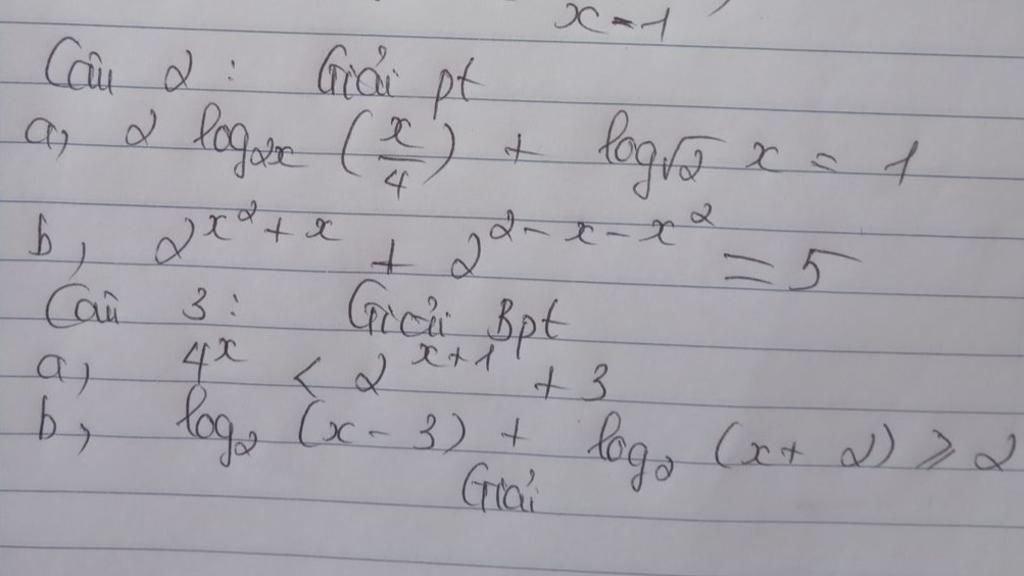 x = 1
Câu 2 : Giải pt
a, 2 log₂ₓ (x/4) + log√2 x = 1
b, 2^(x²+x) + 2^(2-x-x²) = 5
Câu 3 : Giải Bpt
a, 4^x < 2^(x+1) + 3
b, log₂ (x-3) + log₂ (x+2) ⩾ 2
Giải